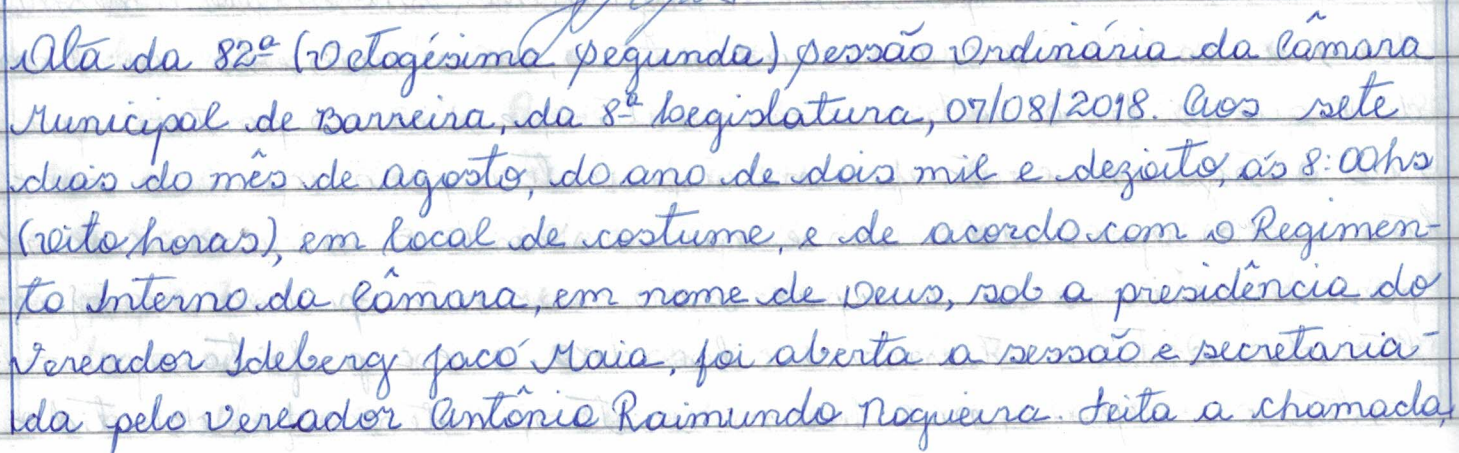 Ata da 82ª (Octogésima segunda) sessão Ordinária da Câmara
Municipal de Barreira, da 8ª Legislatura, 07/08/2018. Aos sete
dias do mês de agosto, do ano de dois mil e dezoito, às 8:00hs
(oito horas), em local de costume, e de acordo com o Regimen-
to Interno da Câmara, em nome de Deus, sob a presidência do
Vereador Ideberg Jacó Maia, foi aberta a sessão e secretaria-
da pelo Vereador Antônio Raimundo Nogueira. Feita a chamada,